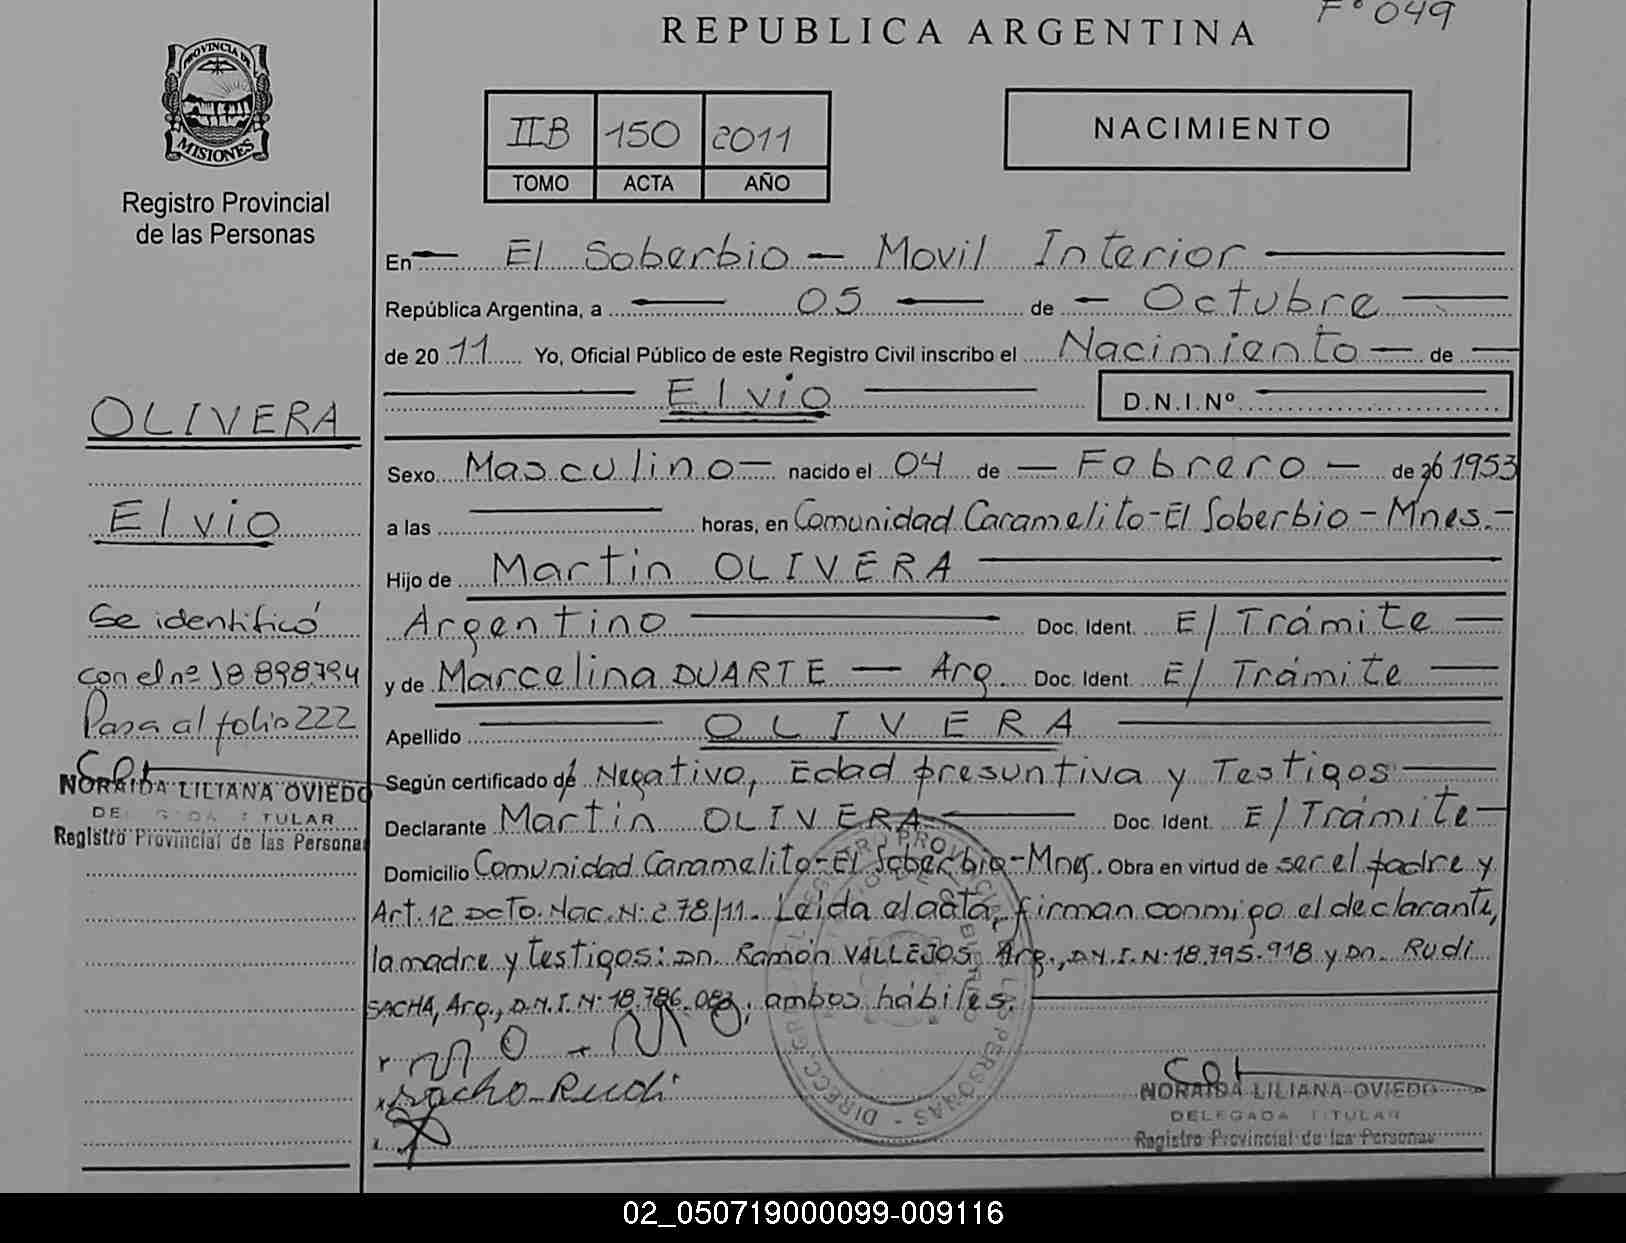 F° 049
REPUBLICA ARGENTINA
PROVINCIA DE
MISIONES
Registro Provincial
de las Personas
IIB 150 2011
TOMO ACTA AÑO
NACIMIENTO
En El Soberbio - Movil Interior
República Argentina, a 05 de Octubre
de 2011 Yo, Oficial Público de este Registro Civil inscribo el Nacimiento de
Elvio D.N.I.Nº
Sexo Masculino nacido el 04 de Febrero de 1953
a las horas, en Comunidad Caramelito-El Soberbio-Mnes.-
Hijo de Martin OLIVERA
Argentino Doc. Ident. E/Trámite
y de Marcelina DUARTE Arg. Doc. Ident. E/Trámite
Apellido OLIVERA
Según certificado de Negativo, Edad presuntiva y Testigos
Declarante Martin OLIVERA Doc. Ident. E/Trámite
Domicilio Comunidad Caramelito-El Soberbio-Mnes. Obra en virtud de ser el padre y
Art. 12 DcTo. Nac. N: 278/11. Leida el acta, firman conmigo el declarante,
la madre y testigos: Dn. Ramón VALLEJOS, Arg., D.N.I. N: 18.795.918 y Dn. Rudi
SACHA, Arg., D.N.I. N: 18.786.083, ambos hábiles.
Sacho Rudi
NORAIDA LILIANA OVIEDO
DELEGADA TITULAR
Registro Provincial de las Personas
OLIVERA
Elvio
Se identificó
con el nº 18.898.794
Pasa al folio 222
NORAIDA LILIANA OVIEDO
DELEGADA TITULAR
Registro Provincial de las Personas
02_050719000099-009116